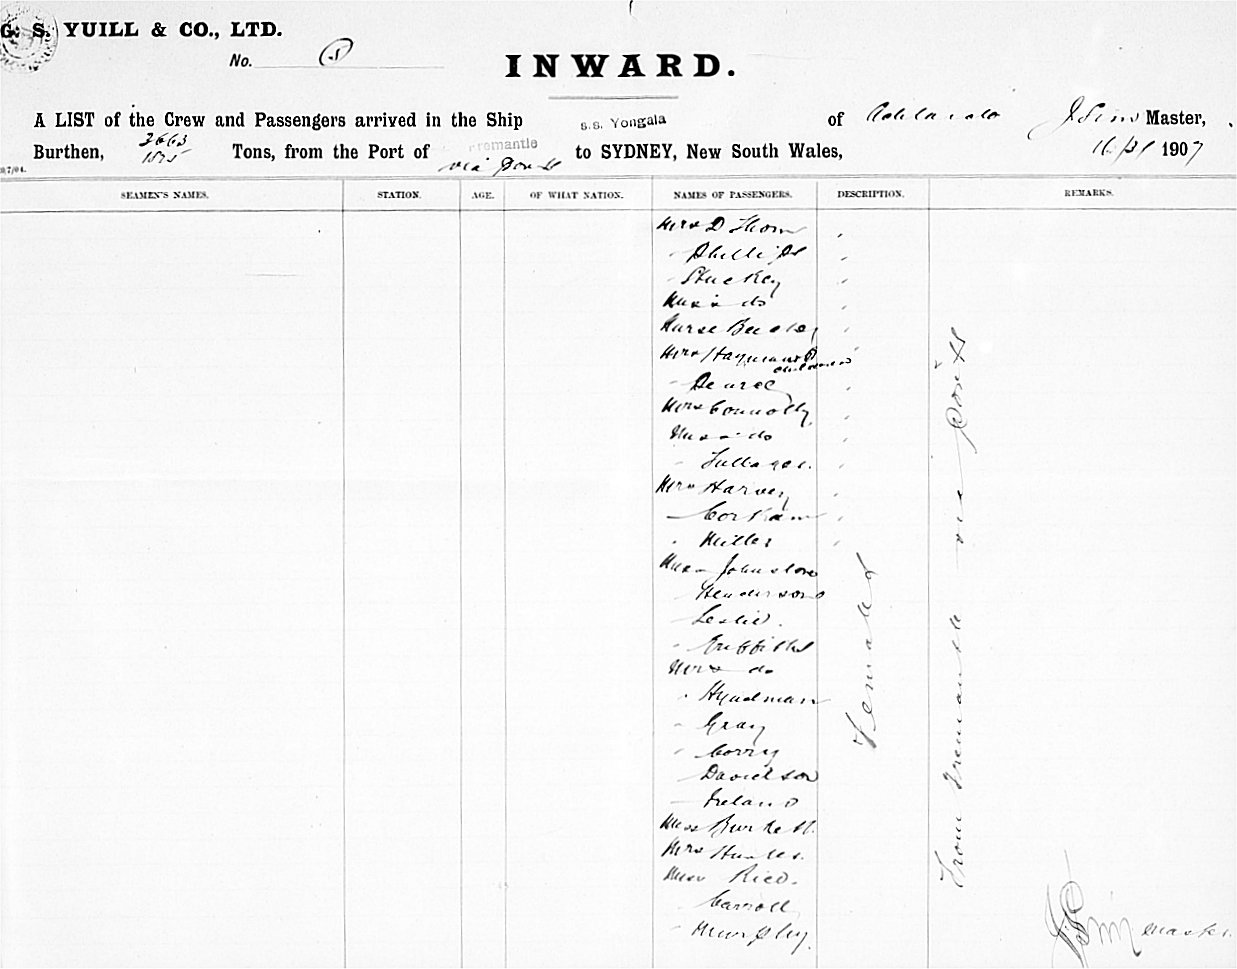 G. S. YUILL & CO., LTD.
No. 5
INWARD.
A LIST of the Crew and Passengers arrived in the Ship s.s. Yongala of Adelaide J Sim Master,
Burthen, 3663 Tons, from the Port of Fremantle to SYDNEY, New South Wales, 1907
1825 via Ports
SEAMEN'S NAMES. STATION. AGE. OF WHAT NATION. NAMES OF PASSENGERS. DESCRIPTION. REMARKS.
Mrs D Thom
" Phillips
" Stuckey
Miss do
Nurse
Mrs Hayman &
children
" Pearce
Mrs Connolly
Miss do
"
Mrs Harvey
" Corkam
" Miller
Miss Johnstone
Henderson
" Leslie.
" Griffiths
Mrs do
" Hyndman
" Gray
" Corry
" Davidson
" Ireland
Miss Burkett.
Mrs
Miss Rice.
" Carroll
" Murphy.
Females
From Fremantle via Ports
J Sim Master